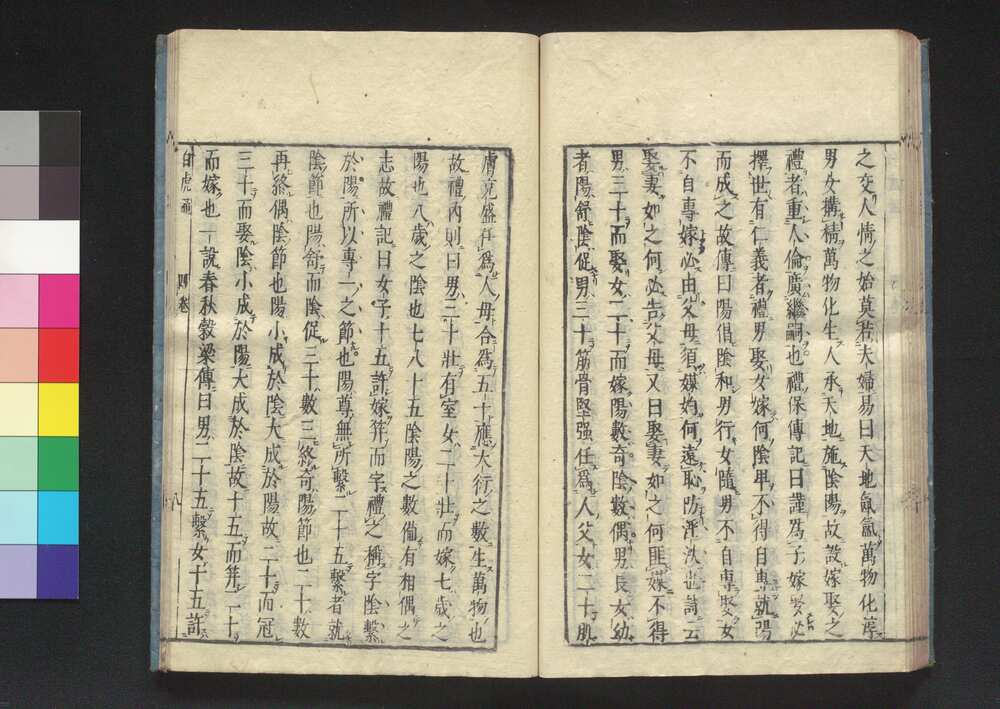 之交人情之始莫若夫婦易曰天地氤氳萬物化淳
男女搆精萬物化生人承天地施陰陽故設嫁娶之
禮者重人倫廣繼嗣也禮保傅記曰謹爲子嫁娶必
擇世有仁義者禮男娶女嫁何陰卑不得自專就陽
而成之故傳曰陽倡陰和男行女隨男不自專娶女
不自專嫁必由父母須媒妁何遠恥防淫泆也詩云
娶妻如之何必告父母又曰娶妻如之何匪媒不得
男三十而娶女二十而嫁陽數奇陰數偶男長女幼
者陽舒陰促男三十筋骨堅强任爲人父女二十肌
膚充盛任爲人母合爲五十應大衍之數生萬物也
故禮內則曰男三十壯有室女二十壯而嫁七歲之
陽也八歲之陰也七八十五陰陽之數備有相偶之
志故禮記曰女子十五許嫁笄而字禮之稱字陰繫
於陽所以專一之節也陽尊無所繫二十五繫者就
陰節也陽舒而陰促三十數三終奇陽節也二十數
再終偶陰節也陽小成於陰大成於陽故二十而冠
三十而娶陰小成於陽大成於陰故十五而笄二十
而嫁也一說春秋穀梁傳曰男二十五繫女十五許
白虎通 四卷 八